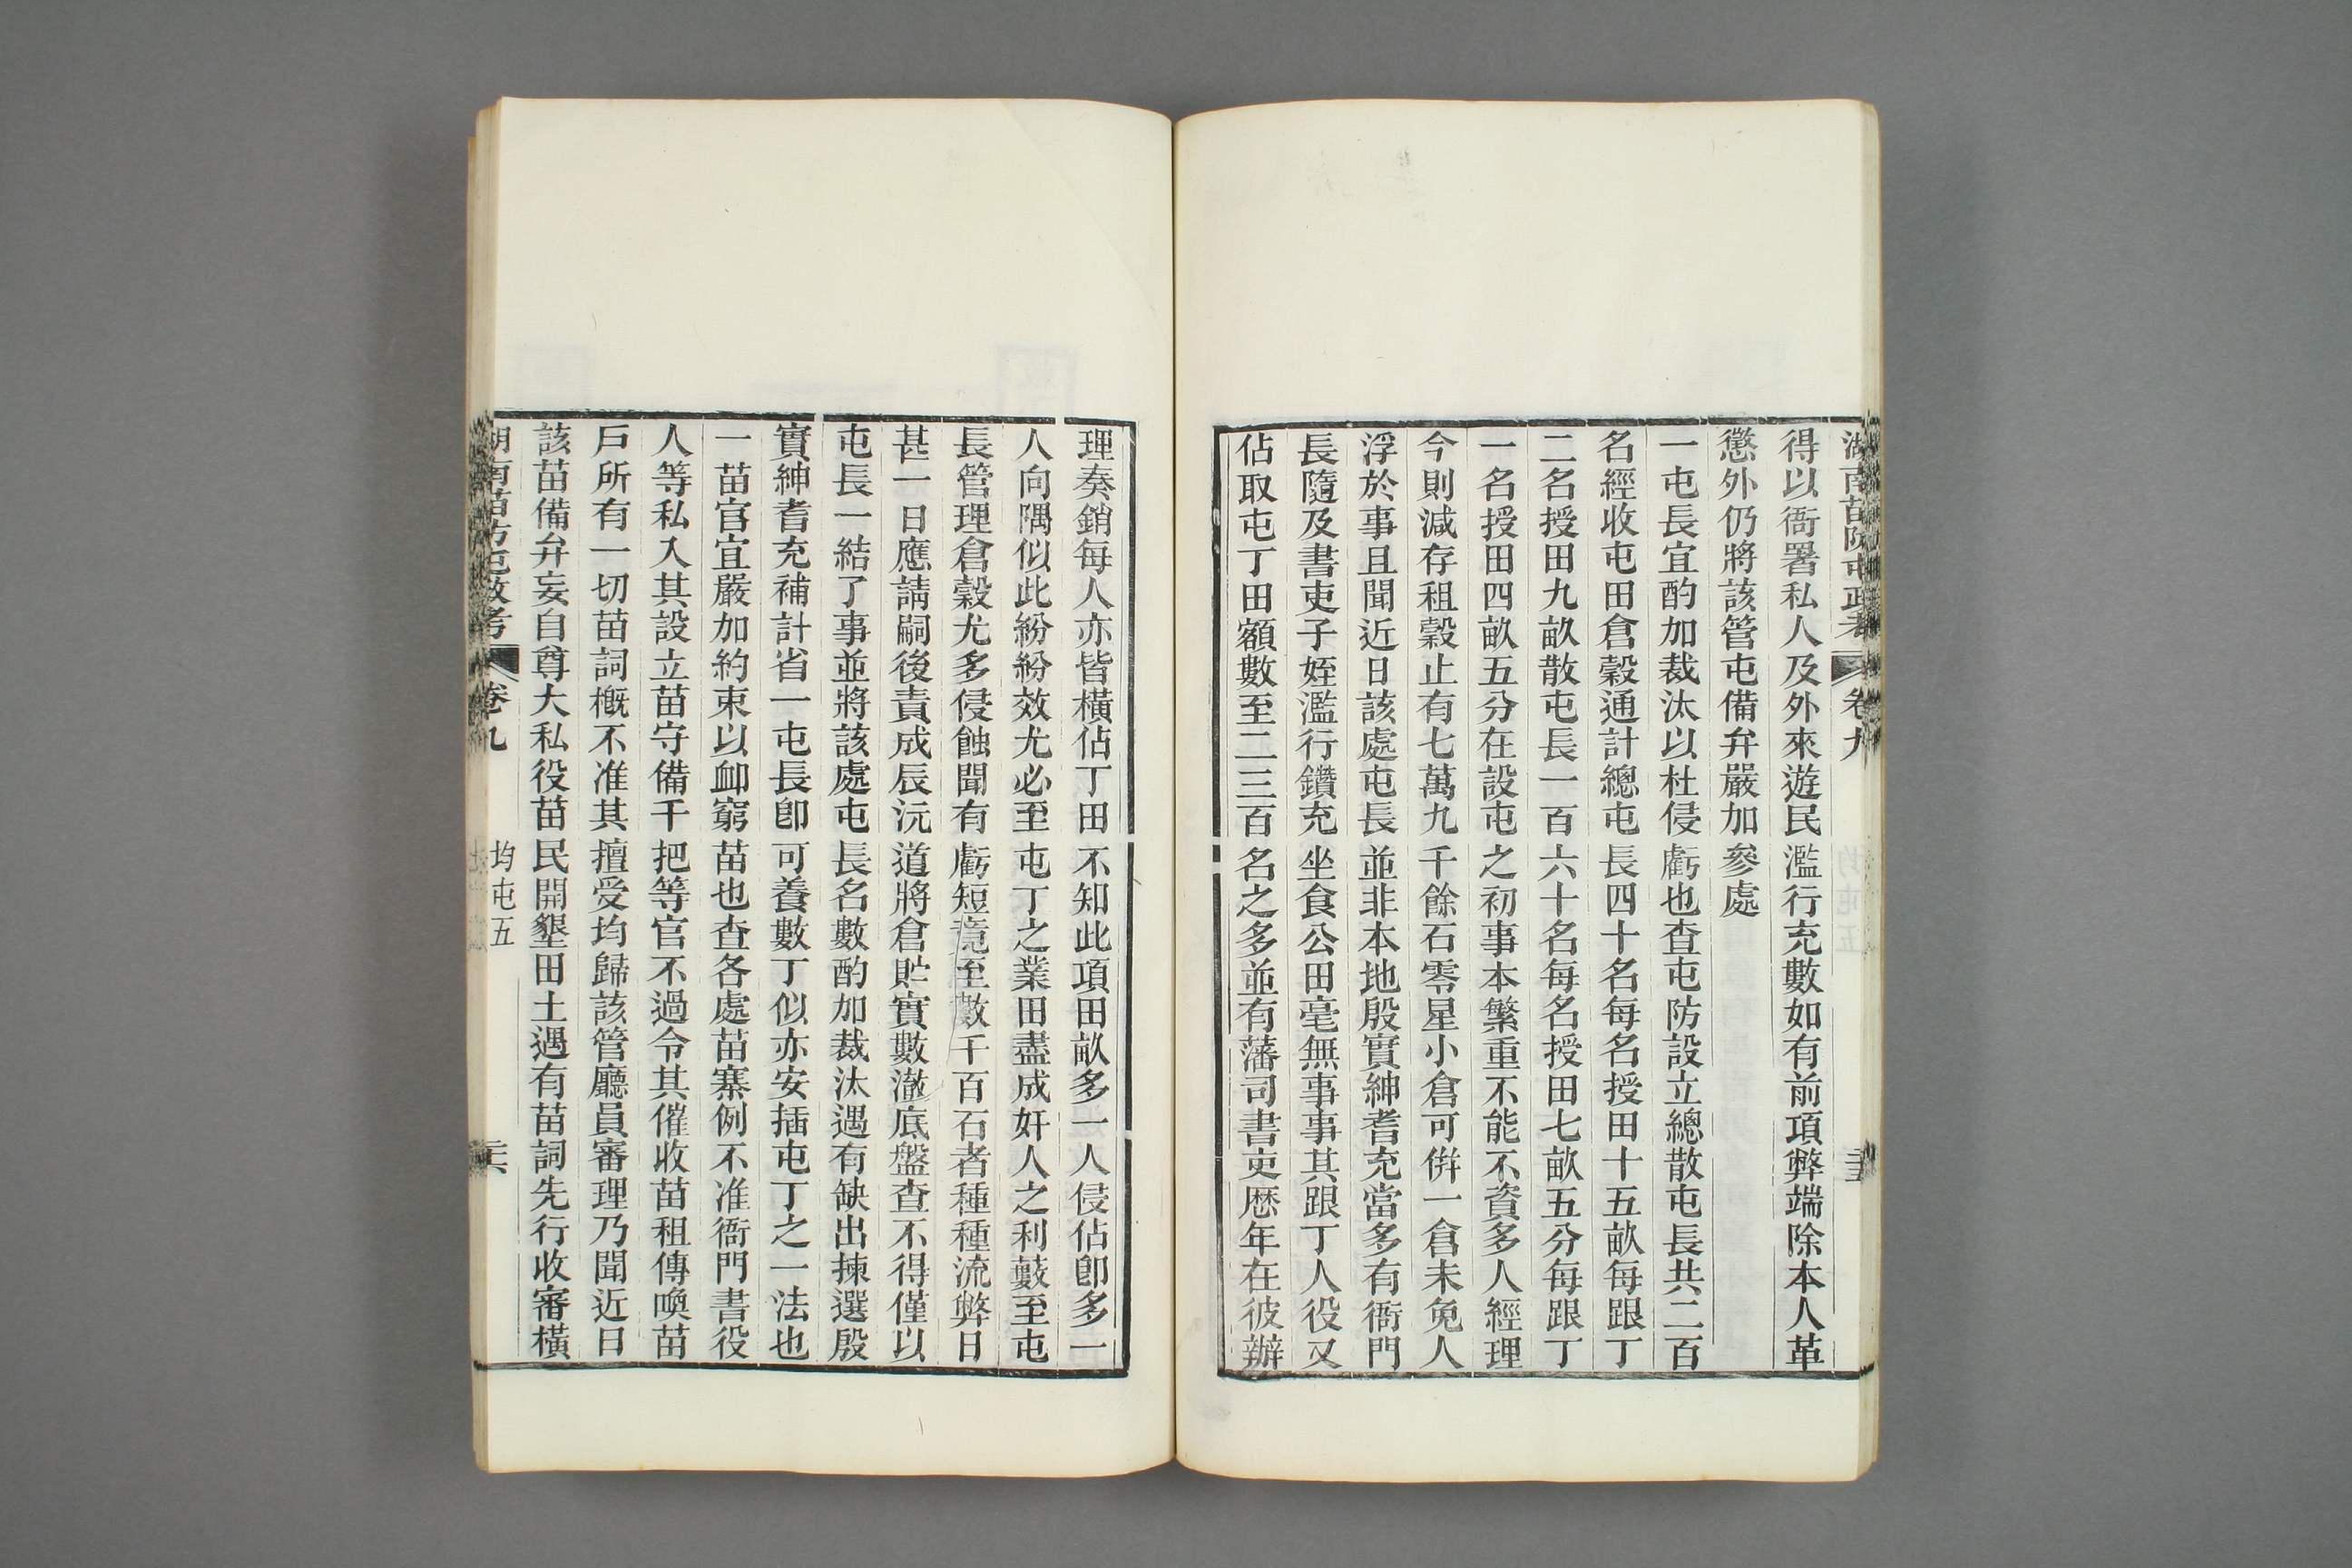 湖南苗防屯政考 卷九 均屯五
得以衙署私人及外來遊民濫行充數如有前項弊端除本人革
懲外仍將該管屯備弁嚴加參處
一屯長宜酌加裁汰以杜侵虧也查屯防設立總散屯長共二百
名經收屯田倉穀通計總屯長四十名每名授田十五畝每跟丁
二名授田九畝散屯長一百六十名每名授田七畝五分每跟丁
一名授田四畝五分在設屯之初事本繁重不能不資多人經理
今則減存租穀止有七萬九千餘石零星小倉可倂一倉未免人
浮於事且聞近日該處屯長並非本地殷實紳耆充當多有衙門
長隨及書吏子姪濫行鑽充坐食公田毫無事事其跟丁人役又
佔取屯丁田額數至二三百名之多並有藩司書吏歷年在彼辦
理奏銷每人亦皆橫佔丁田不知此項田畝多一人侵佔卽多一
人向隅似此紛紛效尤必至屯丁之業田盡成奸人之利藪至屯
長管理倉穀尤多侵蝕聞有虧短竟至數千百石者種種流弊日
甚一日應請嗣後責成辰沅道將倉貯實數澈底盤查不得僅以
屯長一結了事並將該處屯長名數酌加裁汰遇有缺出揀選殷
實紳耆充補計省一屯長卽可養數丁似亦安插屯丁之一法也
一苗官宜嚴加約束以卹窮苗也查各處苗寨例不准衙門書役
人等私入其設立苗守備千把等官不過令其催收苗租傳喚苗
戶所有一切苗詞槪不准其擅受均歸該管廳員審理乃聞近日
該苗備弁妄自尊大私役苗民開墾田土遇有苗詞先行收審橫
湖南苗防屯政考 卷九 均屯五 二六